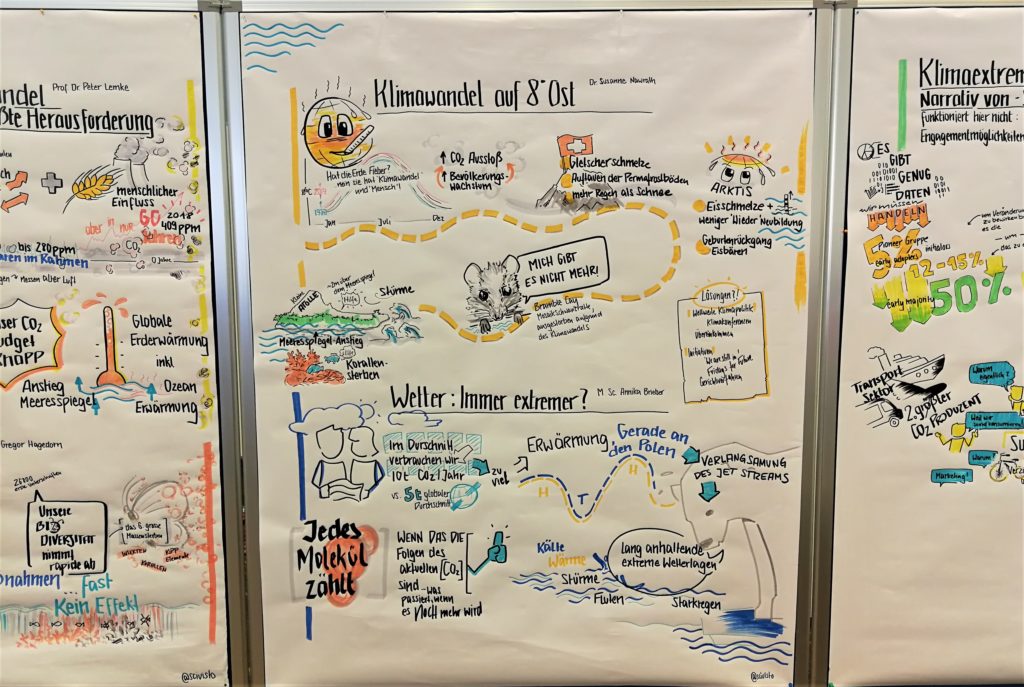 Prof Dr Peter Lemke
andel
ßte Herausforderung
Menschlicher
Einfluss
aber in nur 60
Jahren
2018
409 ppm
bis 280 ppm
CO₂
0 Jahre
Messen alter Luft
ser CO₂
udget
Knapp
Globale
Erderwärmung
inkl
Ozean
Erwärmung
Anstieg
Meeresspiegel
Gregor Hagedorn
Unsere
Bio
Diversität
nimmt
rapide ab
das 6. grosse
Massensterben
Kipp
Elemente
Korallen
nahmen ... fast
Kein Effekt
@scivisto
Klimawandel auf 8° Ost
Dr. Susanne Nawrath
Hat die Erde Fieber?
nein sie hat Klimawandel
und "Mensch"!
Jan
Juli
Dez
CO₂ Ausstoß
Bevölkerungs-
wachstum
Gletscherschmelze
Auftauen der Permafrostböden
mehr Regen als Schnee
ARKTIS
Eisschmelze +
weniger Wieder Neubildung
Geburtenrückgang
Eisbären
MICH GIBT
ES NICHT MEHR!
Bramble Cay
Mosaikschwanzratte
ausgestorben aufgrund
des Klimawandels
Stürme
Hilfe
Meeresspiegel-Anstieg
Korallen-
sterben
Lösungen?!
Weltweite Klimapolitik!
Klimakonferenzen
Übereinkommen
Initiativen!
Fridays for Future
Wetter: Immer extremer?
M. Sc. Annika Brieber
Im Durschnitt
verbrauchen wir
10t CO₂/Jahr
vs. 5t globaler
Durchschnitt
zu
viel
Erwärmung
Gerade an
den Polen
Verlangsamung
des Jet Streams
H
T
H
Jedes
Molekül
zählt
Wenn das die
Folgen des
aktuellen [CO₂]
sind – was
passiert, wenn
es noch mehr wird
Kälte
Wärme
Stürme
Fluten
Starkregen
lang anhaltende
extreme Wetterlagen
Klimaextrem
Narrativ von -
funktioniert hier nicht:
Engagementmöglichkeiten
Es
gibt
genug
Daten
wir müssen
handeln
5%
Pioneer Gruppe
early adopters
initiators
12 - 15%
early majority
50%
Transport
Sektor
2. größter
CO₂ Produzent
Warum
eigentlich?
Weil wir
sonst konsumieren
Warum?
Marketing!